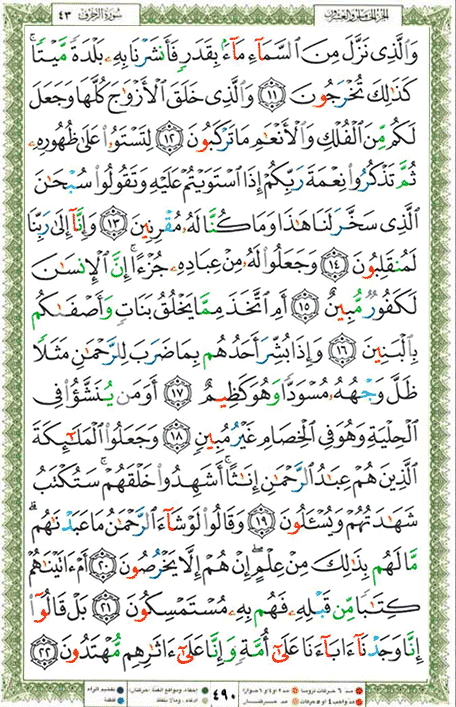 سُورَةُ الزُّخْرُفِ ٤٣
الجزء الخامس والعشرون
وَالَّذِي نَزَّلَ مِنَ السَّمَآءِ مَآءَۢ بِقَدَرٖ فَأَنشَرۡنَا بِهِۦ بَلۡدَةٗ مَّيۡتٗاۚ
كَذَٰلِكَ تُخۡرَجُونَ ١١ وَالَّذِي خَلَقَ الۡأَزۡوَٰجَ كُلَّهَا وَجَعَلَ
لَكُم مِّنَ الۡفُلۡكِ وَالۡأَنۡعَٰمِ مَا تَرۡكَبُونَ ١٢ لِتَسۡتَوُۥاْ عَلَىٰ ظُهُورِهِۦ
ثُمَّ تَذۡكُرُواْ نِعۡمَةَ رَبِّكُمۡ إِذَا اسۡتَوَيۡتُمۡ عَلَيۡهِ وَتَقُولُواْ سُبۡحَٰنَ
الَّذِي سَخَّرَ لَنَا هَٰذَا وَمَا كُنَّا لَهُۥ مُقۡرِنِينَ ١٣ وَإِنَّآ إِلَىٰ رَبِّنَا
لَمُنقَلِبُونَ ١٤ وَجَعَلُواْ لَهُۥ مِنۡ عِبَادِهِۦ جُزۡءًاۚ إِنَّ الۡإِنسَٰنَ
لَكَفُورٞ مُّبِينٌ ١٥ أَمِ اتَّخَذَ مِمَّا يَخۡلُقُ بَنَاتٖ وَأَصۡفَىٰكُم
بِالۡبَنِينَ ١٦ وَإِذَا بُشِّرَ أَحَدُهُم بِمَا ضَرَبَ لِلرَّحۡمَٰنِ مَثَلٗا
ظَلَّ وَجۡهُهُۥ مُسۡوَدّٗا وَهُوَ كَظِيمٌ ١٧ أَوَمَن يُنَشَّؤُاْ فِي
الۡحِلۡيَةِ وَهُوَ فِي الۡخِصَامِ غَيۡرُ مُبِينٖ ١٨ وَجَعَلُواْ الۡمَلَٰٓئِكَةَ
الَّذِينَ هُمۡ عِبَٰدُ الرَّحۡمَٰنِ إِنَٰثًاۚ أَشَهِدُواْ خَلۡقَهُمۡۚ سَتُكۡتَبُ
شَهَٰدَتُهُمۡ وَيُسۡـَٔلُونَ ١٩ وَقَالُواْ لَوۡ شَآءَ الرَّحۡمَٰنُ مَا عَبَدۡنَٰهُمۗ
مَّا لَهُم بِذَٰلِكَ مِنۡ عِلۡمٍۖ إِنۡ هُمۡ إِلَّا يَخۡرُصُونَ ٢٠ أَمۡ ءَاتَيۡنَٰهُمۡ
كِتَٰبٗا مِّن قَبۡلِهِۦ فَهُم بِهِۦ مُسۡتَمۡسِكُونَ ٢١ بَلۡ قَالُوٓاْ
إِنَّا وَجَدۡنَآ ءَابَآءَنَا عَلَىٰٓ أُمَّةٖ وَإِنَّا عَلَىٰٓ ءَاثَٰرِهِم مُّهۡتَدُونَ ٢٢
٤٩٠